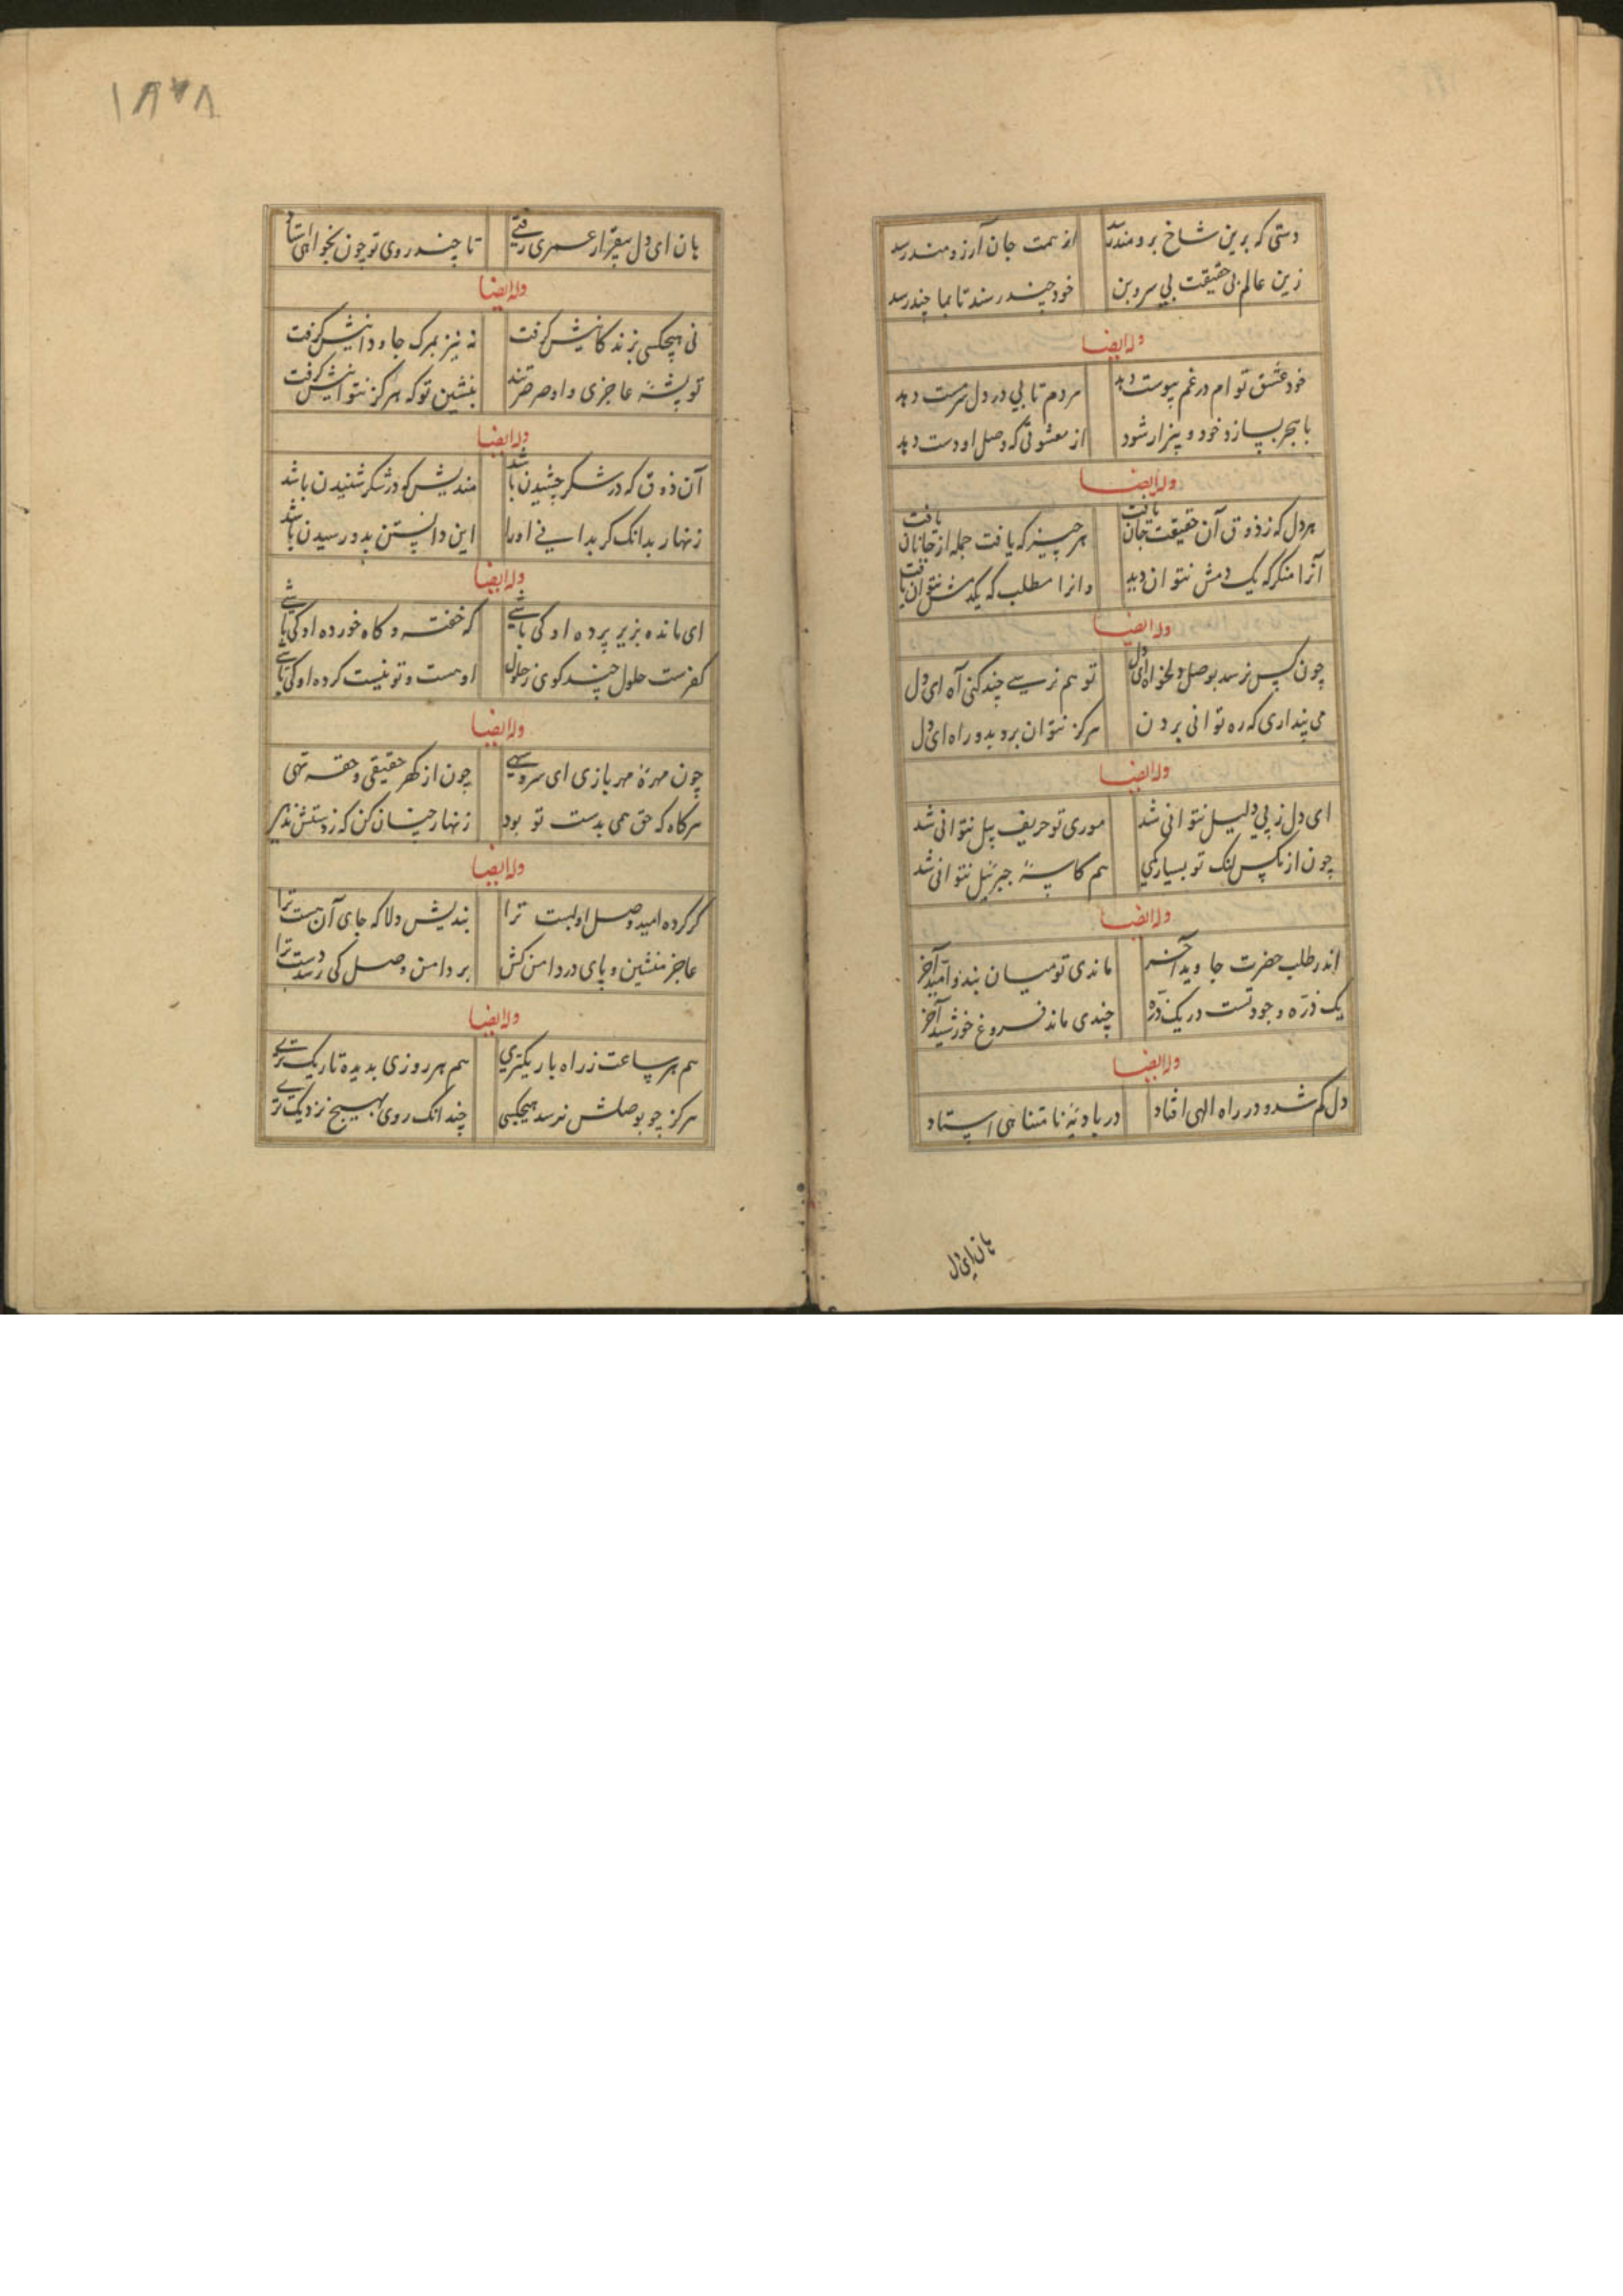 دستی که برین شاخ برومند رسد از همت جان آرزومند رسد
زین عالم بی حقیقت بی سر و بن خود چند رسد تا بما چند رسد
وله ایضا
خود عشق توام در غم پیوست دهد مردم تابی در دل سرمست دهد
با هجر بسازد خود و بیزار شود از معشوقی که وصل او دست دهد
وله ایضا
هر دل که ز ذوق آن حقیقت جان یافت هر چیز که یافت جمله از جانان یافت
آنرا منکر که یک دمش نتوان دید وانرا مطلب که یکدمش نتوان یافت
وله ایضا
چون کس نرسد بوصل دلخواه ای دل تو هم نرسی چند کنی آه ای دل
می پنداری که ره توانی بردن هرکز نتوان برد بدو راه ای دل
وله ایضا
ای دل ز پی دلیل نتوانی شد موری تو حریف پیل نتوانی شد
چون از مکس لنک تو بسیار کمی هم کاسهٔ جبرئیل نتوانی شد
وله ایضا
اندر طلب حضرت جاوید آخر ماندی تو میان بند و امید آخر
یک ذرّه وجود تست در یک ذرّه چندی ماند فروغ خورشید آخر
وله ایضا
دل کم شد و در راه الهی افتاد در بادیهٔ نامتناهی استاد
هان ای دل
۱۸۷۸
هان ای دل بیقرار عمری رفتی تا چند روی تو چون نخواهی استاد
وله ایضا
نی هیچکسی بزندکانیش کرفت نه نیز بمرک جاودانیش کرفت
تو پشهٔ عاجزی و او صرصر تند بنشین تو که هرکز نتوانیش کرفت
وله ایضا
آن ذوق که در شکر چشیدن باشد مندیش که در شکر شنیدن باشد
زنهار بدانک کر بدانی او را این دانستن بدو رسیدن باشد
وله ایضا
ای مانده بزیر پرده او کی باشی که خفته و کاه خورده او کی باشی
کفرست حلول چند کوی ز حلول او هست و تو نیست کرده او کی باشی
وله ایضا
چون مهرهٔ مهر بازی ای سرو سهی چون از کهر حقیقی و حقه تهی
هرکاه که حق همی بدست تو بود زنهار چنان کن که ز دستش ندهی
وله ایضا
کر کرده امید وصل او بست ترا بندیش دلا که جای آن هست ترا
عاجز منشین و پای در دامن کش بر دامن وصل کی رسد دست ترا
وله ایضا
هم هر ساعت ز راه باریکتری هم هر روزی بدیده تاریکتری
هرکز چو بوصلش نرسد هیچکسی چندانک روی بهیچ نزدیکتری